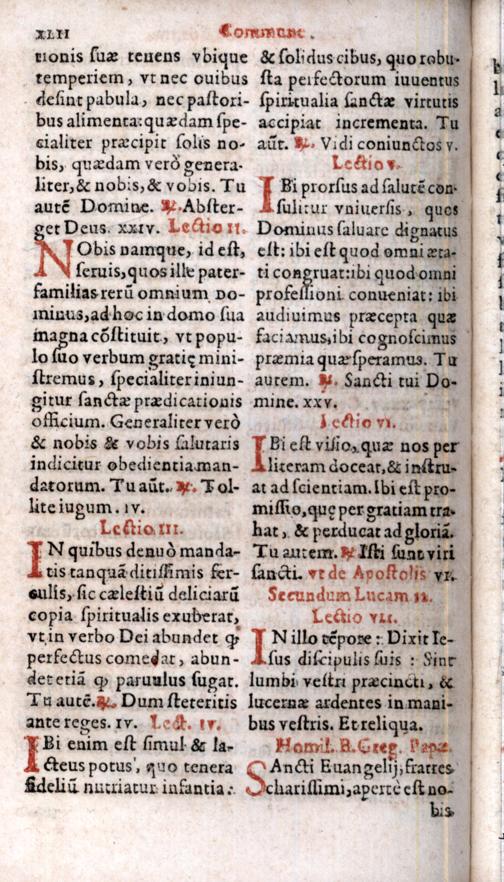 XLII
Commune.
tionis suæ tenens vbique
temperiem, vt nec ouibus
desint pabula, nec pastori-
bus alimenta: quædam spe-
cialiter præcipit solis no-
bis, quædam verò genera-
liter, & nobis, & vobis. Tu
autē Domine. ℟. Abster-
get Deus. XXIV. Lectio II.
NObis namque, id est,
seruis, quos ille pater-
familias rerū omnium Do-
minus, ad hoc in domo sua
magna cōstituit, vt popu-
lo suo verbum gratię mini-
stremus, specialiter iniun-
gitur sanctæ prædicationis
officium. Generaliter verò
& nobis & vobis salutaris
indicitur obedientia man-
datorum. Tu aūt. ℟. Tol-
lite iugum. IV.
Lectio III.
IN quibus denuò manda-
tis tanquā ditissimis fer-
culis, sic cælestiū deliciarū
copia spiritualis exuberat,
vt in verbo Dei abundet ꝙ
perfectus comedat, abun-
det etiā ꝙ paruulus sugat.
Tu autē. ℟. Dum steteritis
ante reges. IV. Lect. IV.
IBi enim est simul & la-
cteus potus, quo tenera
fideliū nutriatur infantia:
& solidus cibus, quo robu-
sta perfectorum iuuentus
spiritualia sanctæ virtutis
accipiat incrementa. Tu
aūt. ℟. Vidi coniunctos V.
Lectio V.
IBi prorsus ad salutē con-
sulitur vniuersis, quos
Dominus saluare dignatus
est: ibi est quod omni æta-
ti congruat: ibi quod omni
professioni conueniat: ibi
audiuimus præcepta quæ
faciamus, ibi cognoscimus
præmia quæ speramus. Tu
autem. ℟. Sancti tui Do-
mine. XXV.
Lectio VI.
IBi est visio, quæ nos per
literam doceat, & instru-
at ad scientiam. Ibi est pro-
missio, quę per gratiam tra-
hat, & perducat ad gloriā.
Tu autem. ℟ Isti sunt viri
sancti. vt de Apostolis VI.
Secundum Lucam 12.
Lectio VII.
IN illo tēpore: Dixit Ie-
sus discipulis suis: Sint
lumbi vestri præcincti, &
lucernæ ardentes in mani-
bus vestris. Et reliqua.
Homil. B. Greg. Papæ.
SAncti Euangelij, fratres
charissimi, apertè est no-
bis